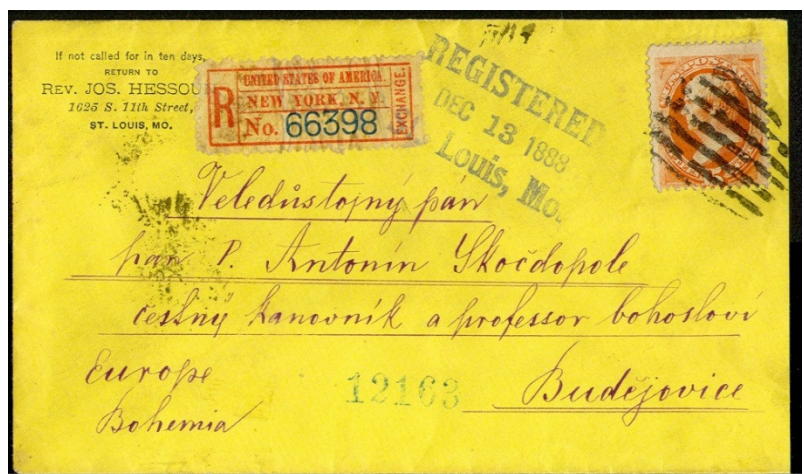 If not called for in ten days,
RETURN TO
REV. JOS. HESSOU
1625 S. 11th Street,
ST. LOUIS, MO.
UNITED STATES OF AMERICA.
R NEW YORK, N. Y.
No. 66398
EXCHANGE.
REGISTERED
DEC 13 1888
Louis, Mo.
Veledůstojný pán
pan P. Antonín Skočdopole
čestný kanovník a professor bohosloví
Europe
12163
Budějovice
Bohemia